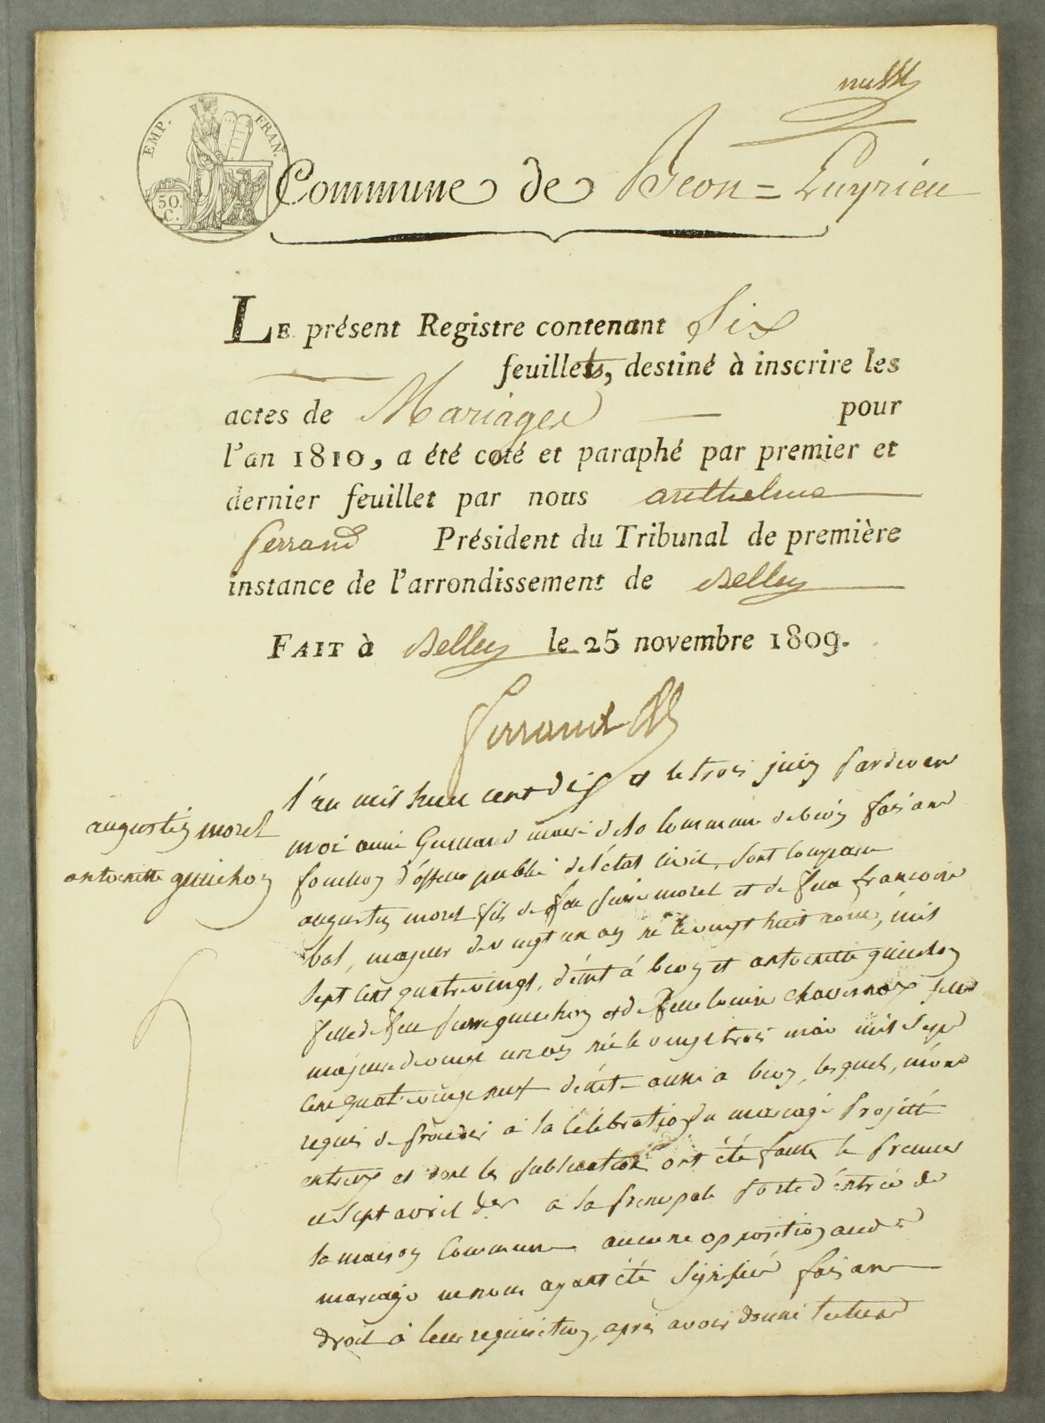 EMP. FRAN.
50 C.
Commune de Beon = Luyrieu
LE présent Registre contenant Six
feuillets, destiné à inscrire les
actes de Mariages pour
l'an 1810, a été coté et paraphé par premier et
dernier feuillet par nous anthelme
ferrand Président du Tribunal de première
instance de l'arrondissement de Belley
FAIT à Belley le 25 novembre 1809.
ferrand
augustin morel
antoinette guichon
l'an mil huit cent dix et le trois juin pardevant
moi maire de la commune de beon faisant
fonction d'officier public de l'état civil, sont comparu
augustin morel fils de feu pierre morel et de feue francoise
bal, majeur de vingt un an né le vingt huit mil
sept cent quatrevingt, démt à beon et antoinette guichon
fille de feu pierre guichon et de feue chavernoz
majeure de vingt un an née le vingt trois mil sept
cent quatrevingt neuf demte aussi a beon, lesquels, m'ont
requis de proceder à la célébration du mariage projetté
entr'eux et dont les publications ont été faites le premier
et sept avril der a la principale porte d'entrée de
la maison Commune aucune opposition audit
mariage ne nous ayant été signifiée faisant
droit à leur requisition, après avoir donné lecture